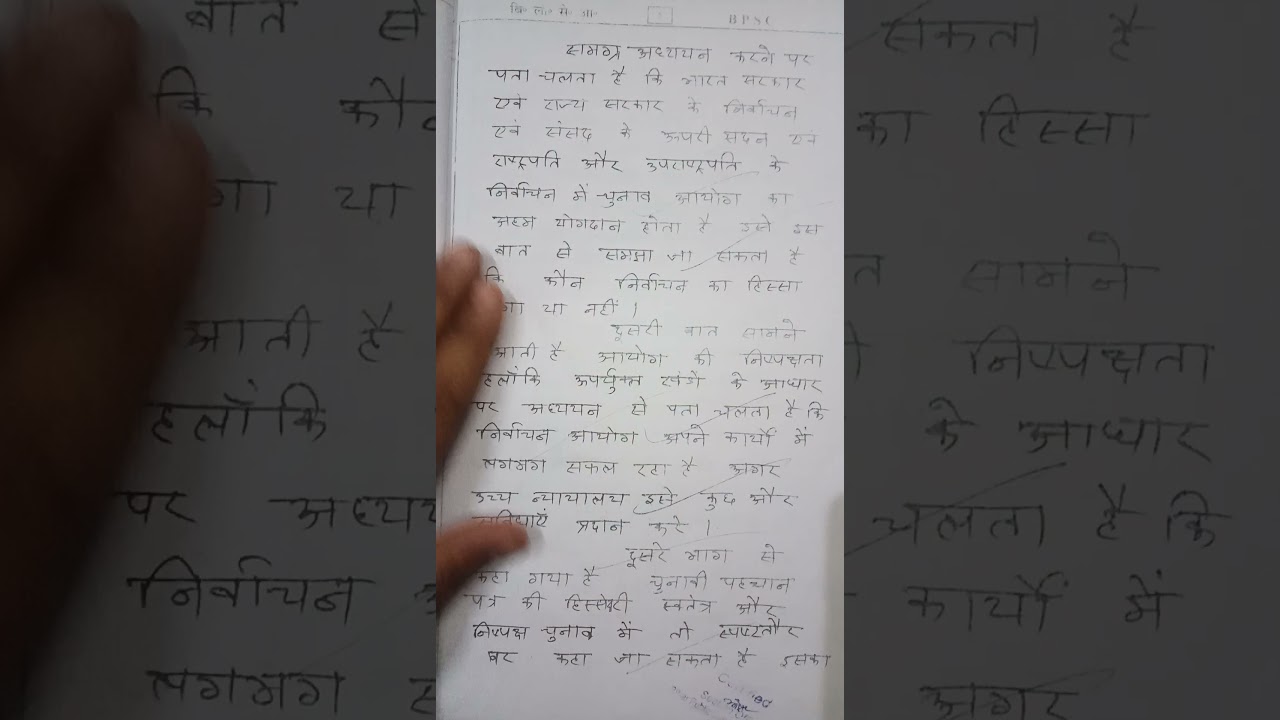 खि० ला० मे० जा०
BPSC
समग्र अध्ययन करने पर
पता चलता है कि भारत सरकार
एवं राज्य सरकार के निर्वाचन
एवं संसद के ऊपरी सदन एवं
राष्ट्रपति और उपराष्ट्रपति के
निर्वाचन में चुनाव आयोग का
अहम योगदान होता है इसे इस
बात से समझा जा सकता है
कि कौन निर्वाचन का हिस्सा
या नहीं ।
दूसरी बात सामने
आती है आयोग की निष्पक्षता
हलाँकि उपर्युक्त खंडो के आधार
पर अध्ययन से पता चलता है कि
निर्वाचन आयोग अपने कार्यों में
लगभग सफल रहा है अगर
उच्च न्यायालय इसे कुछ और
प्रदान करे ।
दूसरे भाग से
कहा गया है चुनावी पहचान
पत्र की हिस्सेदारी स्वतंत्र और
निष्पक्ष चुनाव में तो स्पष्टतौर
पर कहा जा सकता है इसका